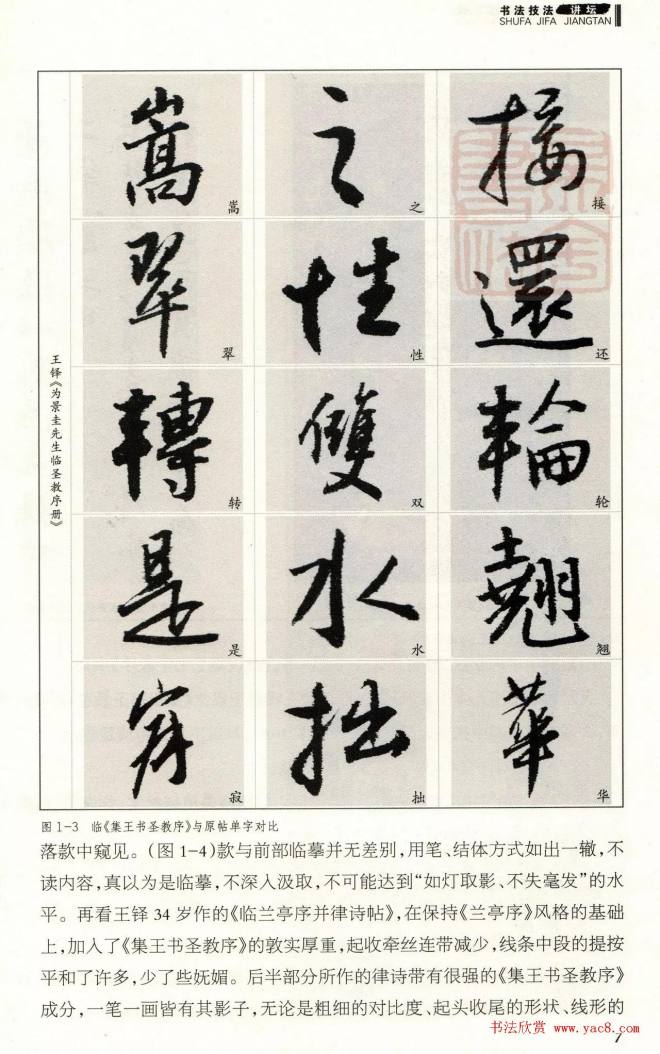 书法技法 讲坛
SHUFA JIFA JIANGTAN
嵩 之 接
嵩 之 接
翠 性 還
翠 性 还
轉 雙 輪
转 双 轮
是 水 翹
是 水 翘
寂 拙 華
寂 拙 华
王铎《为景圭先生临圣教序册》
图 1-3 临《集王书圣教序》与原帖单字对比
落款中窥见。(图 1-4)款与前部临摹并无差别,用笔、结体方式如出一辙,不
读内容,真以为是临摹,不深入汲取,不可能达到“如灯取影、不失毫发”的水
平。再看王铎 34 岁作的《临兰亭序并律诗帖》,在保持《兰亭序》风格的基础
上,加入了《集王书圣教序》的敦实厚重,起收牵丝连带减少,线条中段的提按
平和了许多,少了些妩媚。后半部分所作的律诗带有很强的《集王书圣教序》
成分,一笔一画皆有其影子,无论是粗细的对比度、起头收尾的形状、线形的
书法欣赏 www.yac8.com
7